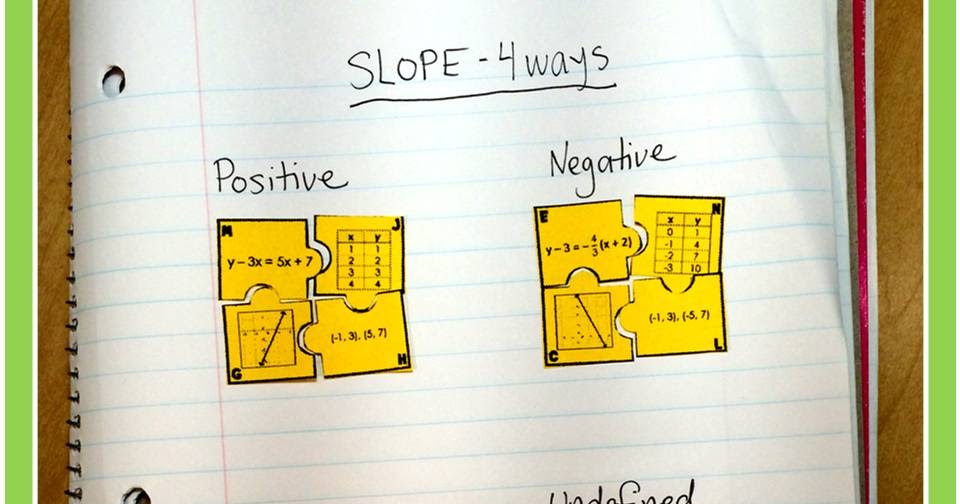 SLOPE - 4 ways
Positive
M
y – 3x = 5x + 7
J
x y
1 1
2 2
3 3
4 4
G
(-1, 3), (5, 7)
H
Negative
E
y – 3 = - 4/3 (x + 2)
N
x y
0 1
-1 4
-2 7
-3 10
C
(-1, 3), (-5, 7)
L
Undefined